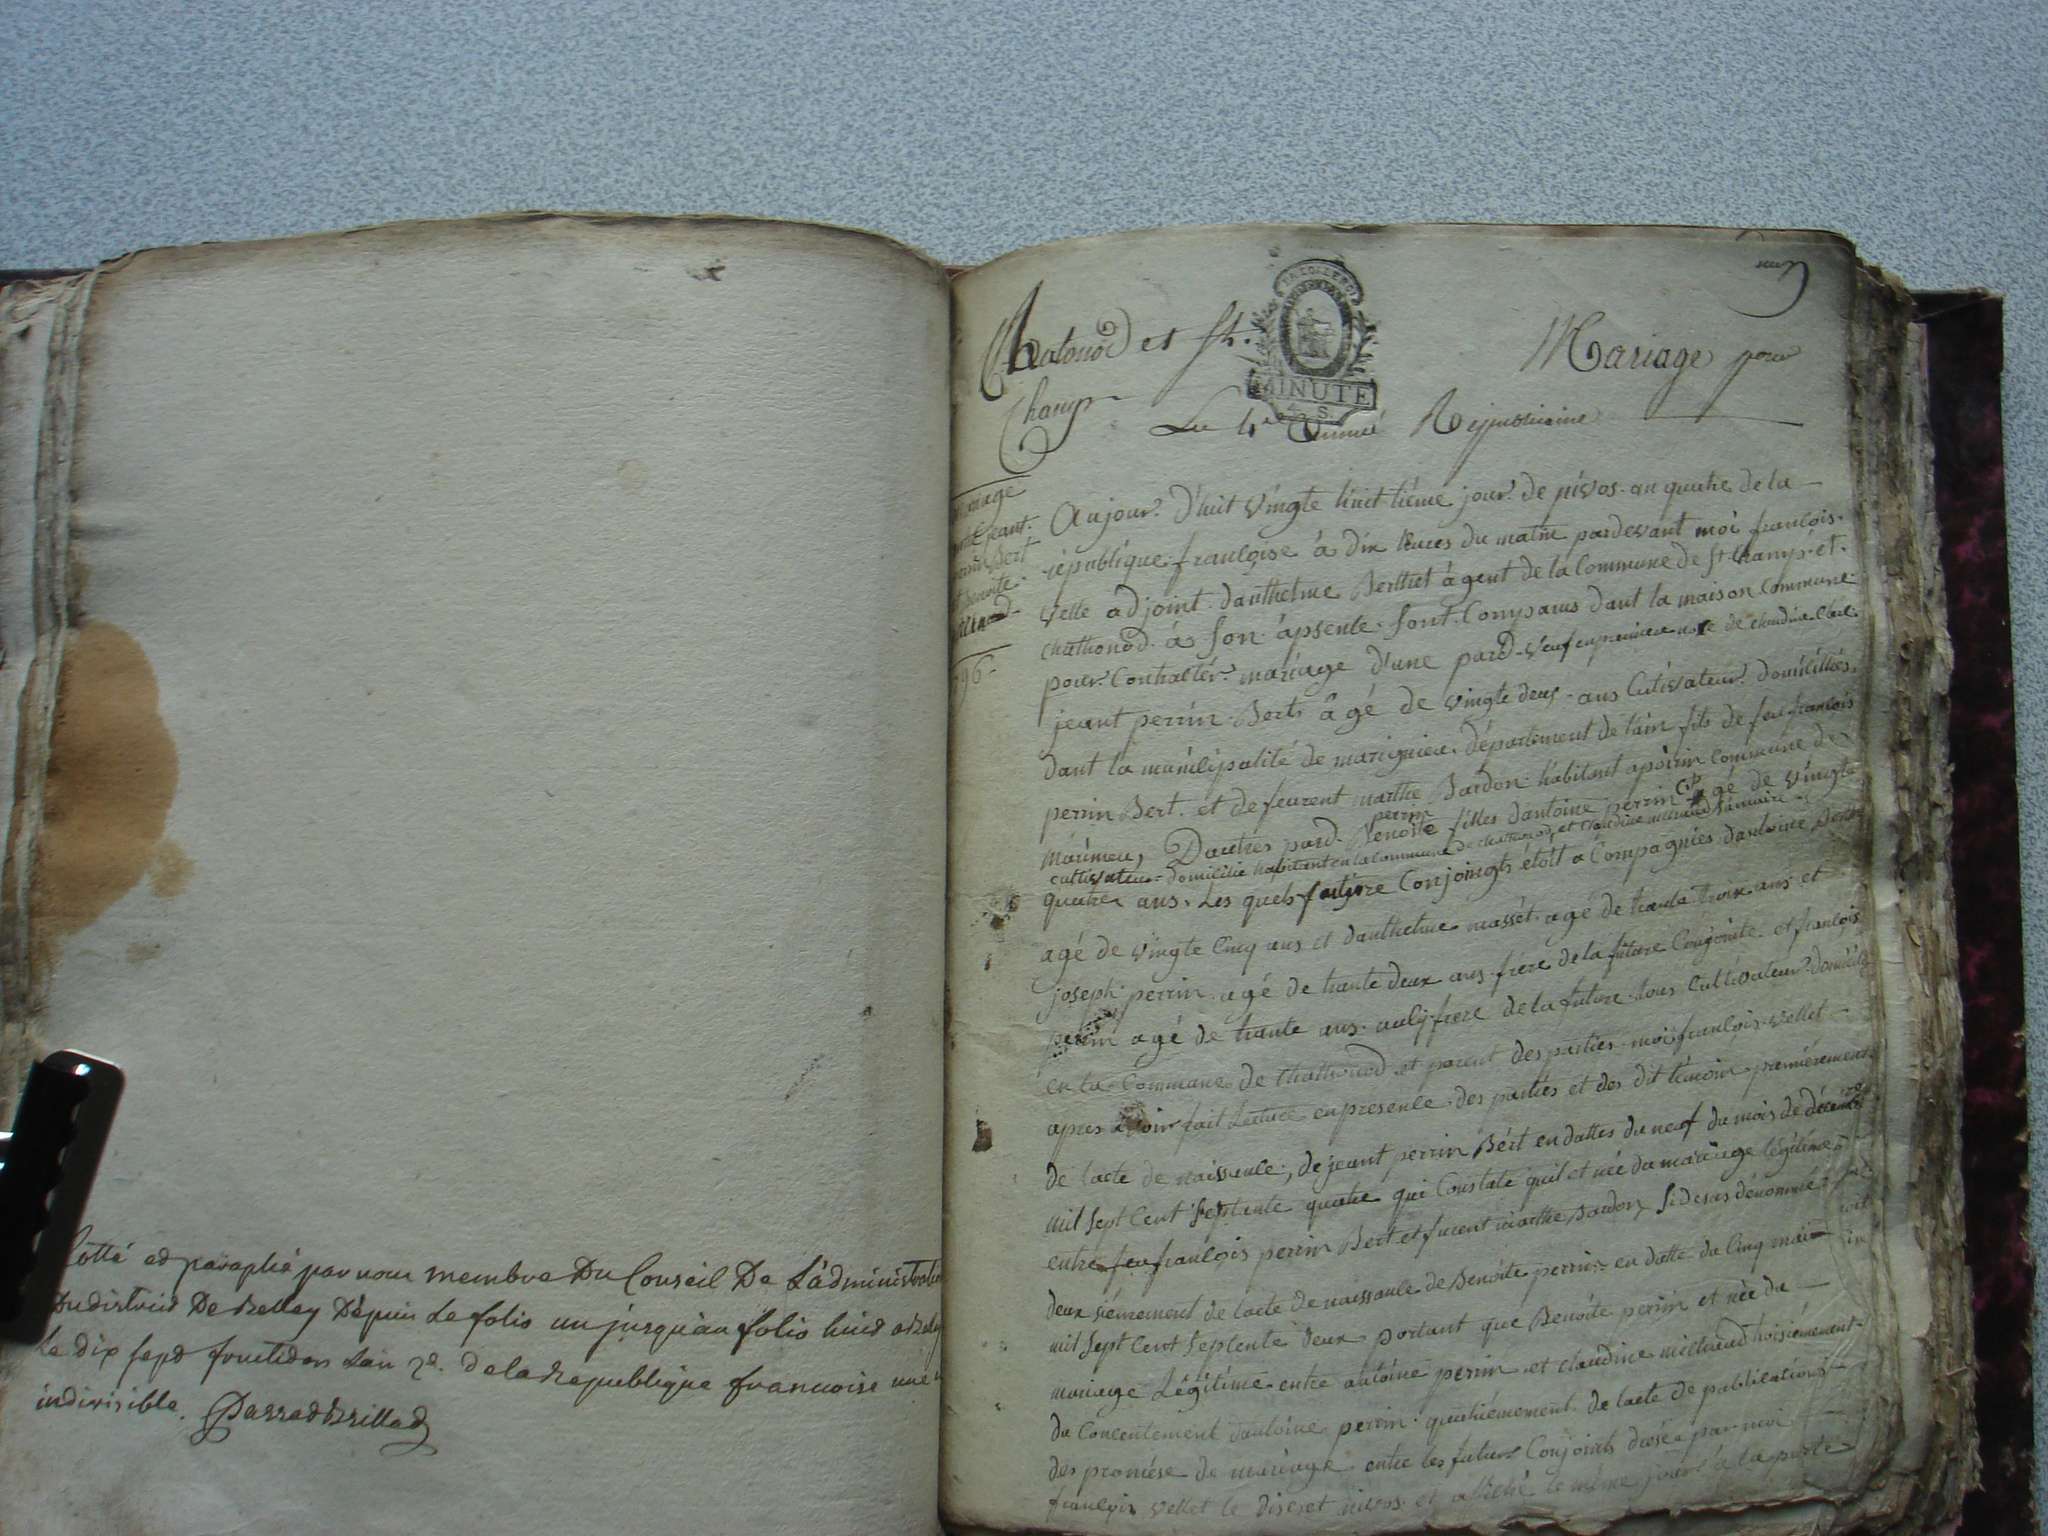 Cotté et paraphé par nous membre Du Conseil De L'administration
Du district De Belley Depuis Le folio un jusqu'au folio huit a Belley
Le dix sept fructidor L'an 2d. de la Republique francoise une
indivisible. Parrad Brillat
un
Chatonod et St.
Champ
MINUTE
S.
Mariage pour
La 4e Année Republicaine
mariage
jeant
perrin Bert
et benoite
96
Aujour. d'huit vingte huit tième jour. de nivos. an quatre de la
république françoise à dix heures du matin pardevant moi françois.
vellet adjoint. danthelme Berthet àgent de la Commune de St Champ. et.
chathonod. à son. àpsente. sont. Comparus dant la maison commune.
pour. Contracter. mariage d'une pard. veuf en premiere noce de claudine
jeant perrin. Bert. âgé de vingte deux. ans Cutivateur. domiciliés.
dant la municipalité de marignieu. département de lain fils de feu françois
perrin Bert. et de feurent marthe Bardon. habitant apoirin commune de
marinieu, Dautres pard. perrin Benoite filles dantoine perrin agé de vingte
cultivateur domicilié habitant en la commune de chathonod et claudine michaud
quatre ans. Les quels future Conjoingts étoit a Compagniés dantoine
agé de vingte Cinq ans et danthelme masset. agé de trante troix ans et
joseph. perrin. agé de trante deux ans. frere de la future Conjointe. et françois
perrin agé de trante ans. ausy frere de la future. tous Cultivateur. domicilie
en la Commune de Chathonod et parent des parties. moi françois. vellet
apres avoir fait Lecture en presence. des parties et des dit témoin premièrement
de lacte de naissance, de jeant perrin Bért en dattes du neuf du mois de décembre
mil Sept Cent Septente quatre qui Constate quil et née du mariage légitime
entre feu françois perrin Bert et furent marthe Bardon, si desus dénommé
deux siémement de lacte de naissance de Benoite perrin. en datte du Cinq mai
mil Sept Cent Septente deux portant que Benoite perrin et née du
mariage Légitime entre antoine perrin et claudine michaud troisièmement.
du Concentement dantoine perrin. quatriemement. de lacte de publications
des promése de mariage entre les futurs Conjoints dresée par moi
françois vellet le diseset nivos. et affiché le même jour à la porte